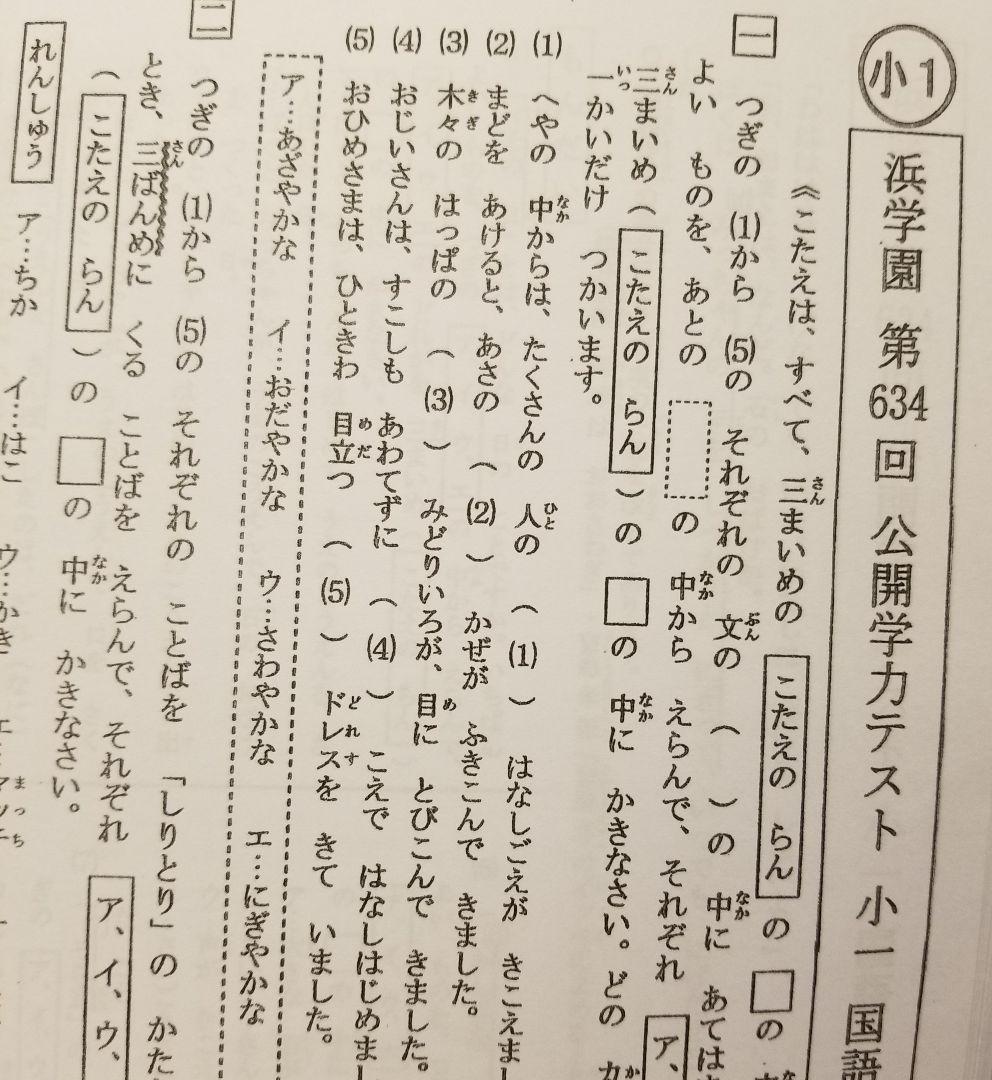 小1
浜学園 第634回 公開学力テスト 小一 国語
《こたえは、すべて、三まいめの こたえの らん の □の
一
つぎの (1)から (5)の それぞれの 文の （ ）の 中に あてはま
よい ものを、あとの の 中から えらんで、それぞれ ア、
三まいめ（ こたえの らん ）の □の 中に かきなさい。どの
一かいだけ つかいます。
(1) へやの 中からは、たくさんの 人の （ (1) ） はなしごえが きこえまし
(2) まどを あけると、あさの （ (2) ） かぜが ふきこんで きました。
(3) 木々の はっぱの （ (3) ） みどりいろが、目に とびこんで きました。
(4) おじいさんは、すこしも あわてずに （ (4) ） こえで はなしはじめまし
(5) おひめさまは、ひときわ 目立つ （ (5) ） ドレスを きて いました。
ア…あざやかな イ…おだやかな ウ…さわやかな エ…にぎやかな
二
つぎの (1)から (5)の それぞれの ことばを 「しりとり」の かた
とき、三ばんめに くる ことばを えらんで、それぞれ ア、イ、ウ、
（ こたえの らん ）の □の 中に かきなさい。
れんしゅう ア…ちか イ…はこ ウ…かき エ…マッチ